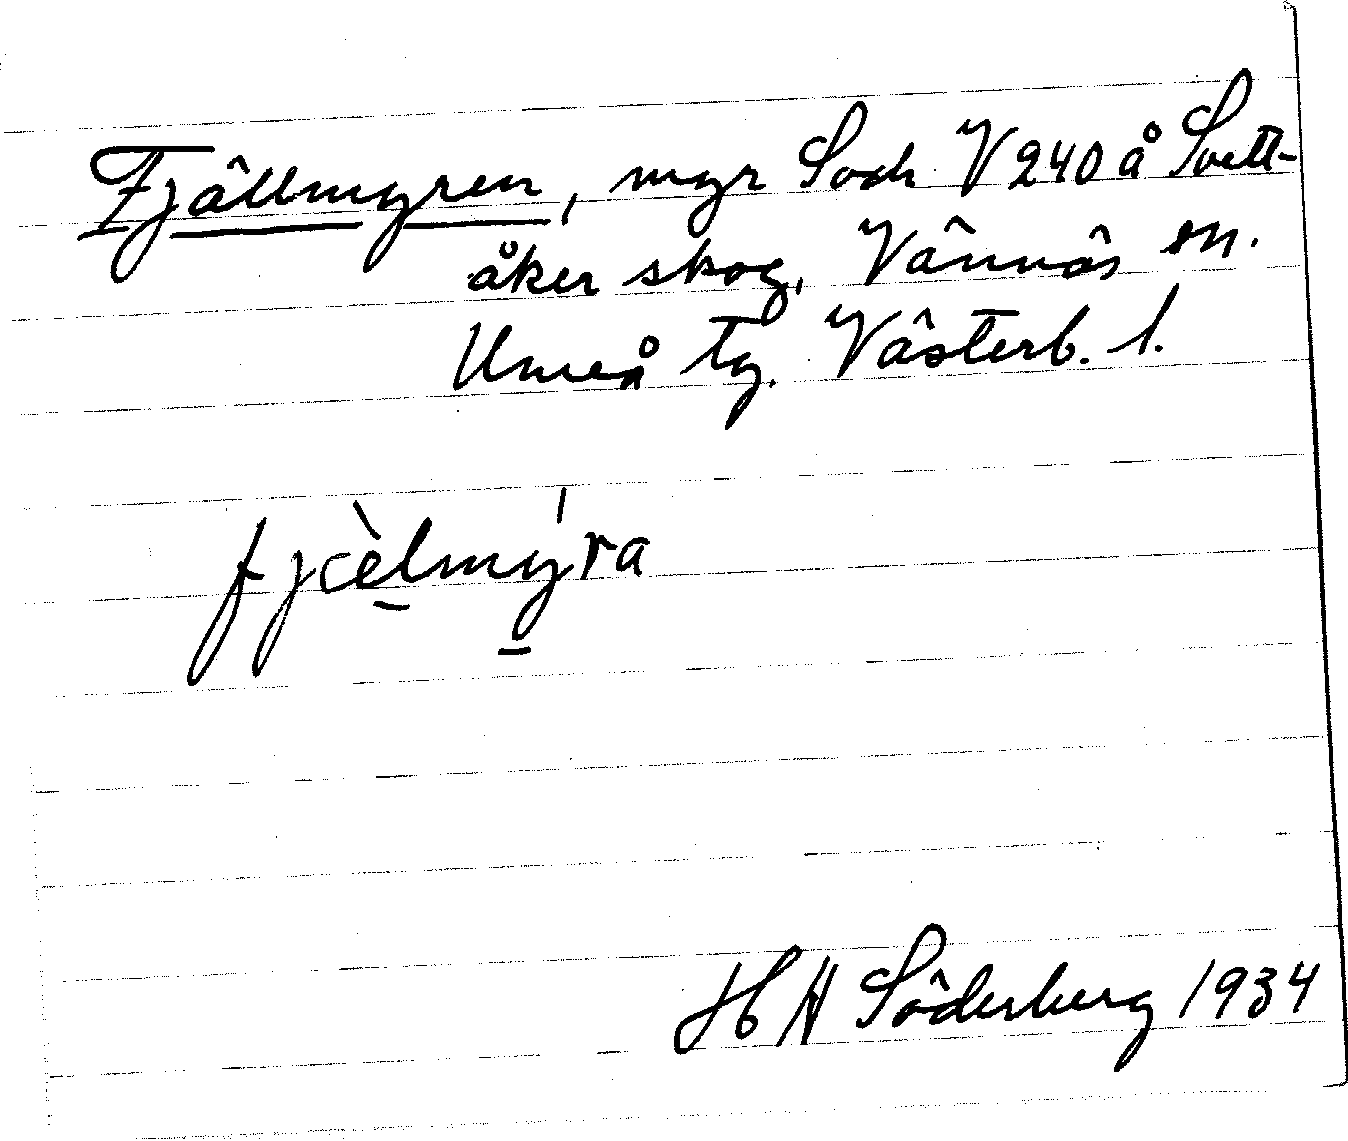 Fjällmyren, myr Söch V240 å Svett-
åker skog, Vännäs sn.
Umeå tg. Västerb. l.
fjæ̀lmýra
H A Söderberg 1934